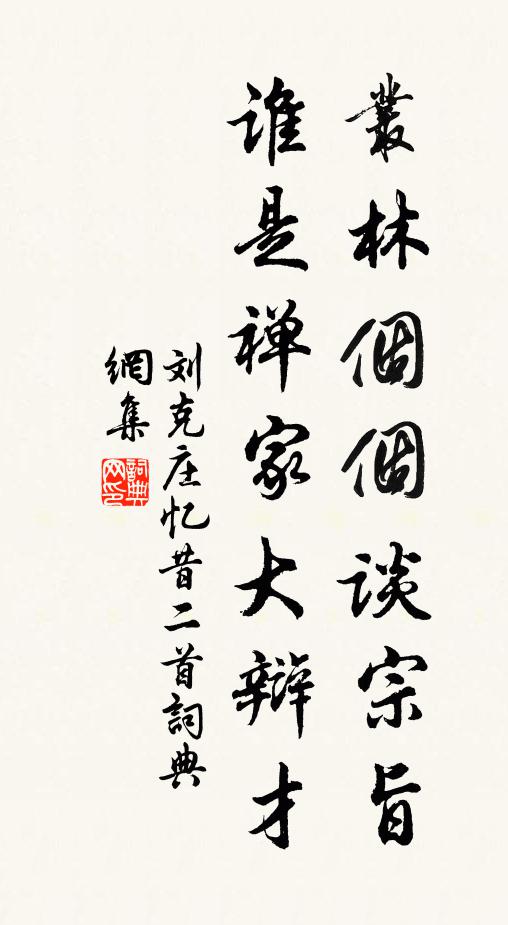 叢林個個談宗旨
誰是禅家大辯才
刘克庄忆昔二首詞典
網集
詞典網印